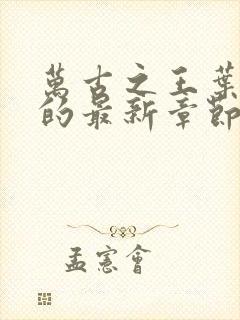 萬古之王葉
的最新章節
孟憲會